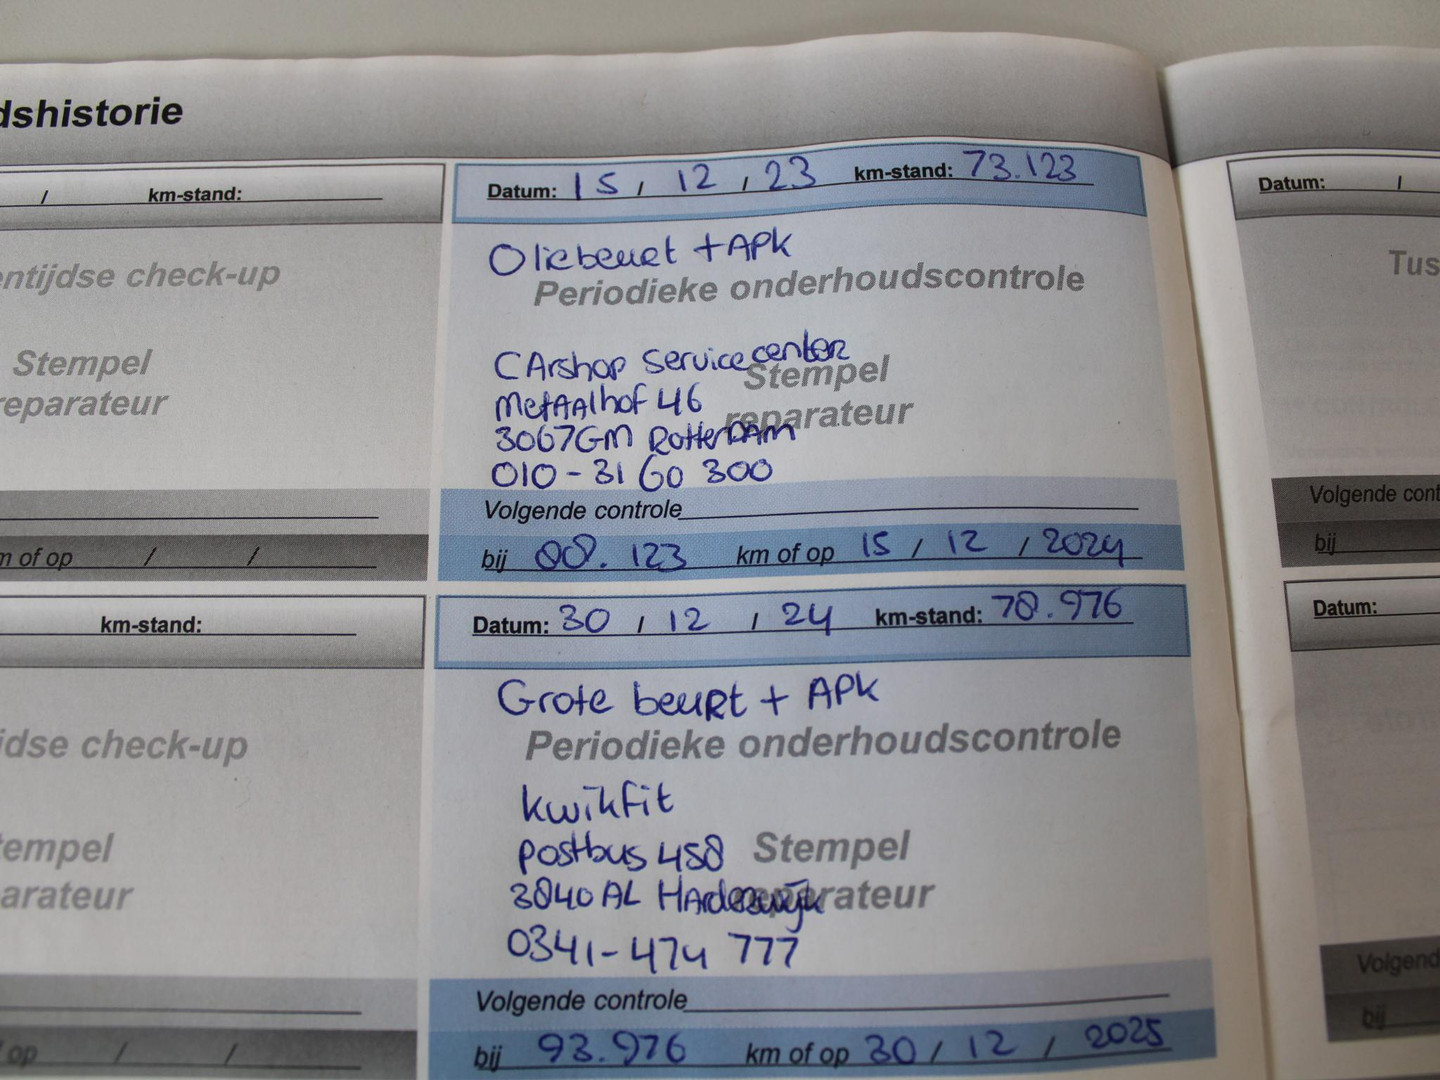 dshistorie
/ km-stand:
entijdse check-up
Stempel
reparateur
m of op / /
km-stand:
jdse check-up
tempel
parateur
op / /
Datum: 15 / 12 / 23 km-stand: 73.123
Oliebeurt + APK
Periodieke onderhoudscontrole
CArshop Servicecenter
Stempel
MetAAlhof 46
reparateur
3067GM RotterDAm
010-31 60 300
Volgende controle
bij 88.123 km of op 15 / 12 / 2024
Datum: 30 / 12 / 24 km-stand: 78.976
Grote beuRt + APK
Periodieke onderhoudscontrole
kwikfit
postbus 458 Stempel
3840 AL HArderwijk reparateur
0341-474 777
Volgende controle
bij 93.976 km of op 30 / 12 / 2025
Datum: /
Tus
Volgende cont
bij
Datum:
Volgend
bij